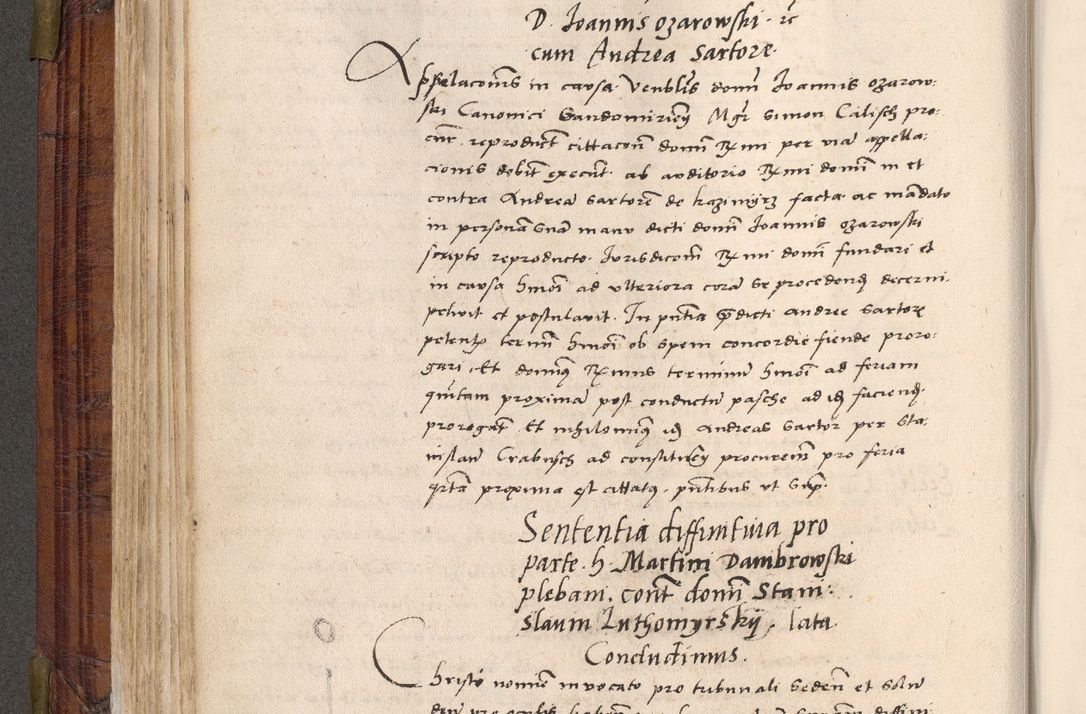 D. Joannis Ozarowski · rc
cum Andrea Sartore
Appelacionis in causa Venblis domi Joannis Ozarow-
ski Canonici Sandomirien Mgr Simon Calisch pro-
cur reproduct cittacon domi Rxmi per via appella-
cionis debit execut ab auditorio Rxmi domi in et
contra Andrea Sartore de Kazimyrz facta ac mandato
in persona sua manu dicti domi Joannis Ozarowski
scripto reproducto Jurisdicom Rxmi domi fundari et
in causa hmoi ad ulteriora cora se procedend decerni
petivit et postulavit. In pntia predicti Andree Sartoris
petent termi hmoi ob spem concordie fiende proro-
gari. Et domi Rxmus terminu hmoi ad feriam
quitam proxima post conductu pasche ad id faciend
prorogat Et nihilomi id Andreas Sartor per Sta-
nislau Crabusch ad constituen procurem pro feria
qrta proxima est cittatus, pntibus ut supr.
Sententia diffinitiva pro
parte · h · Martini Dambrowski
plebani, cont domi Stani-
slaum Luthomyrskij, lata
Concludimus.
Christi nomine invocato pro tribunali seden et solu